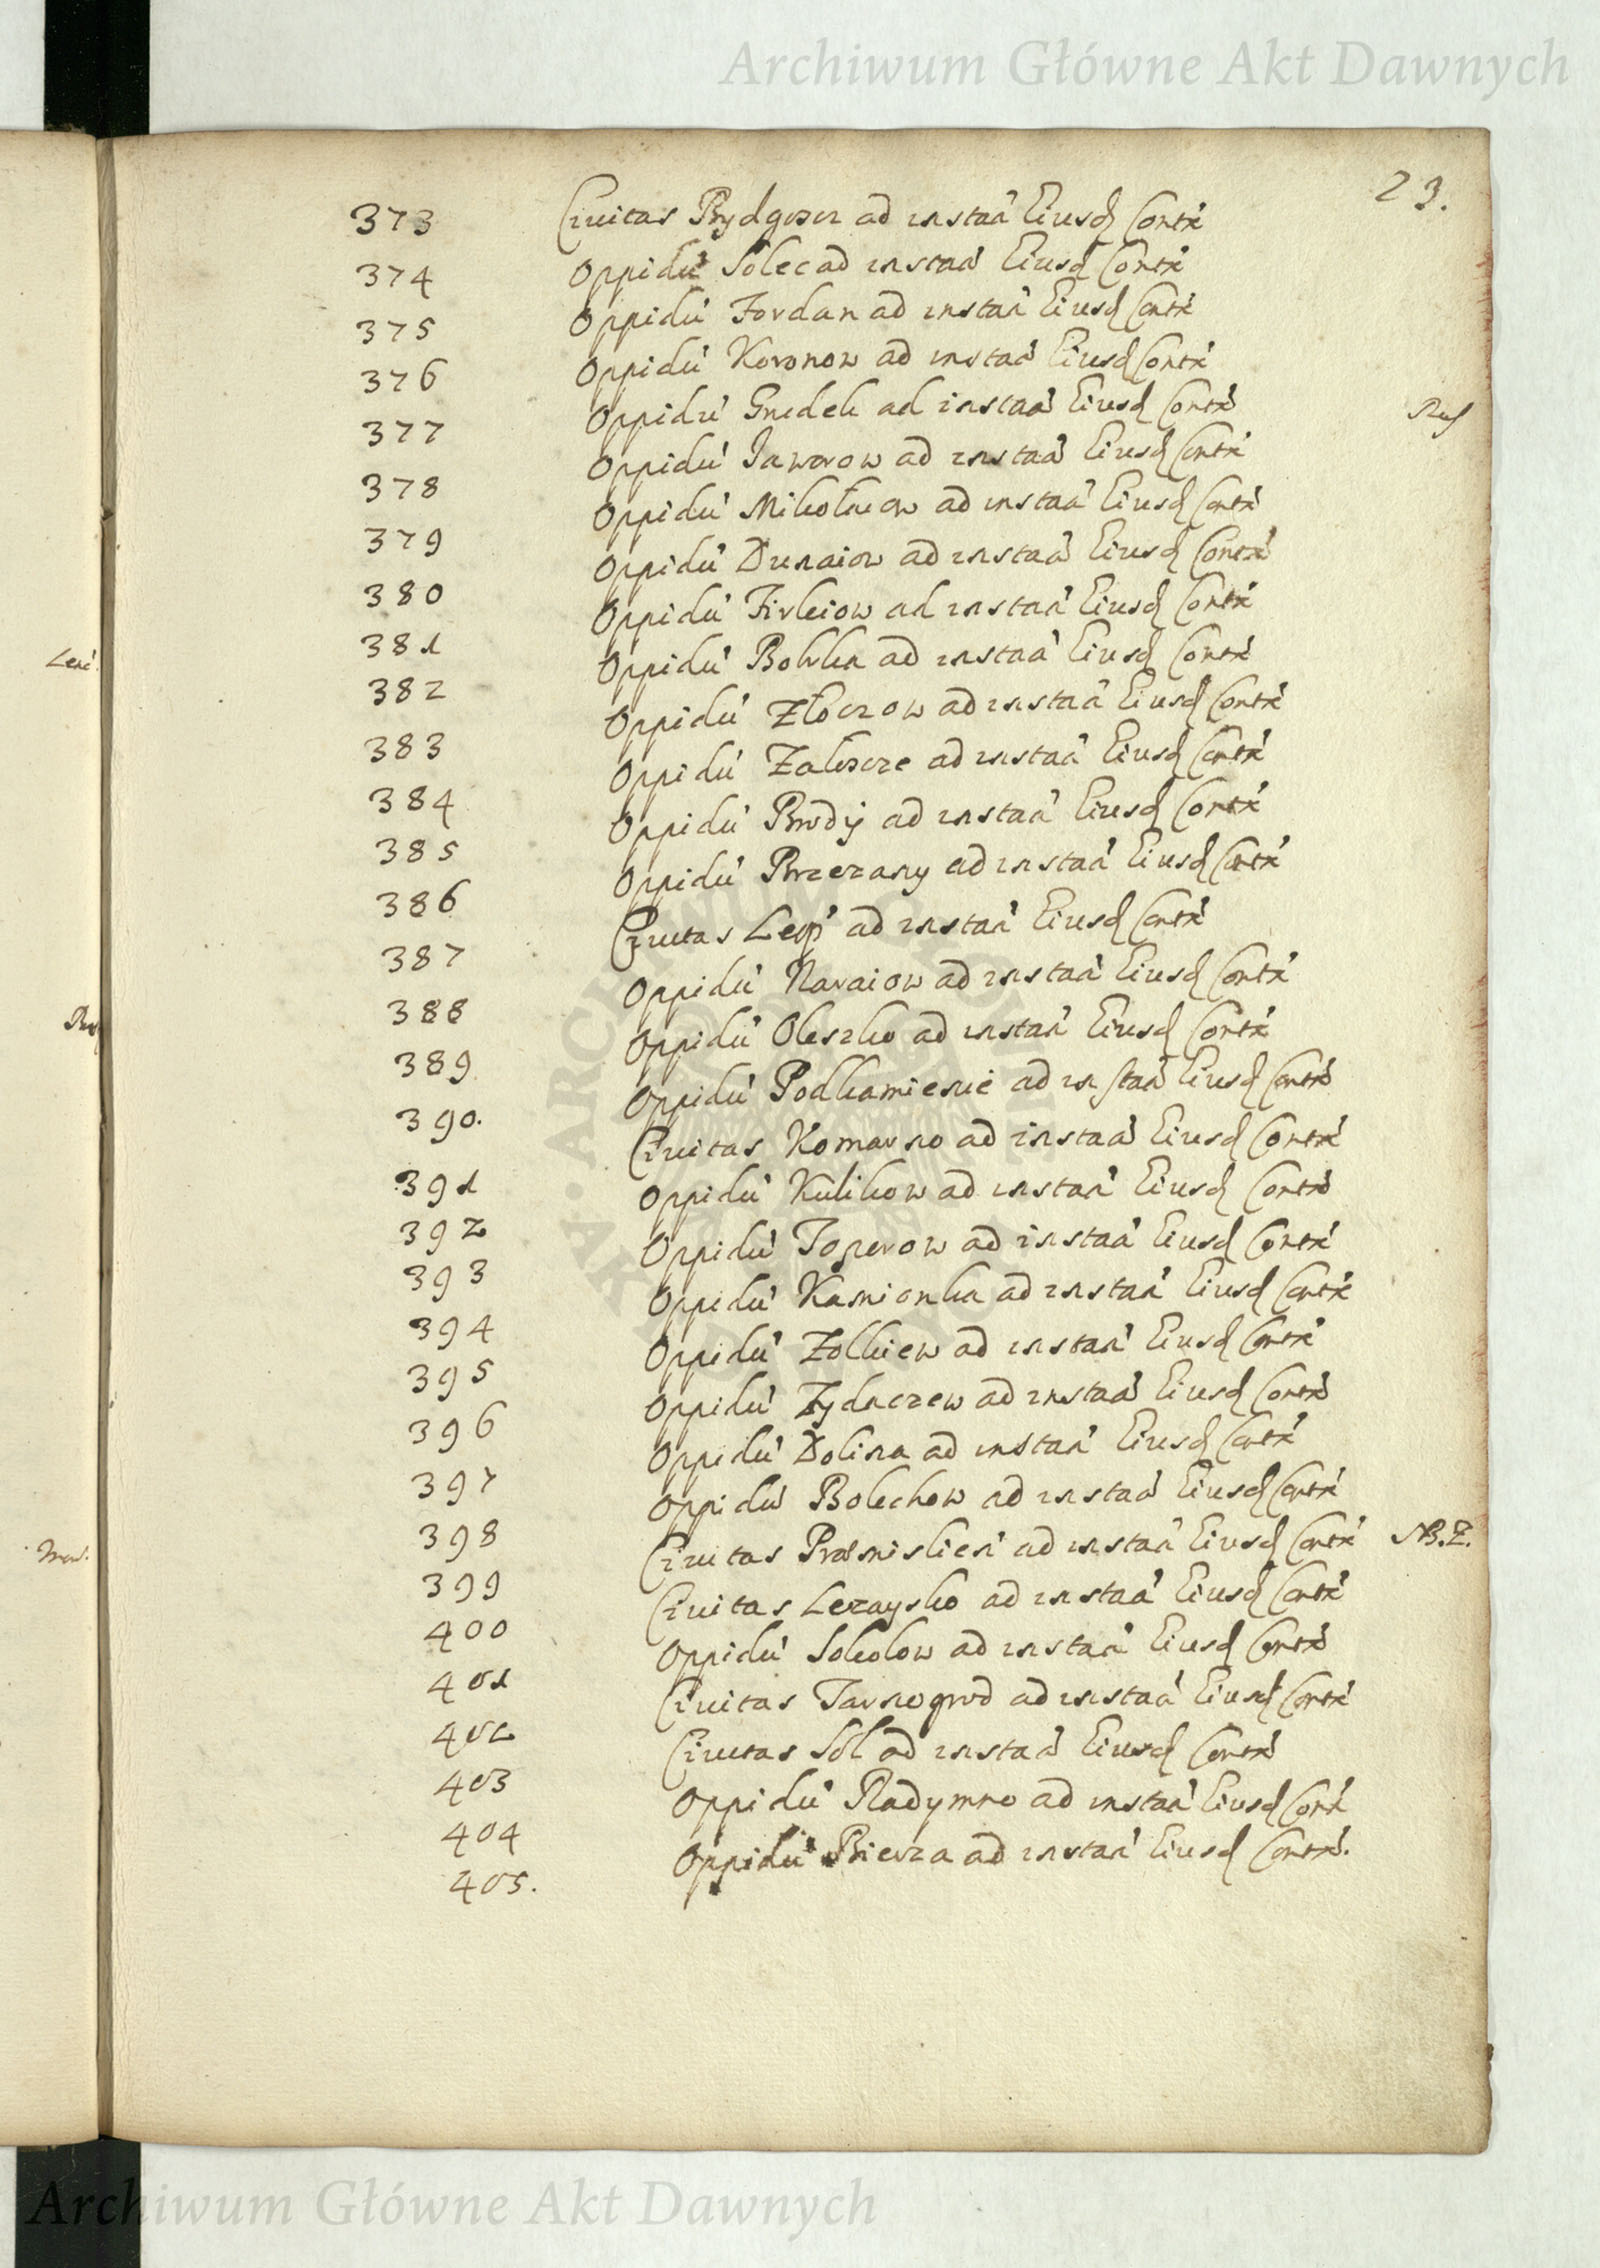 Archiwum Główne Akt Dawnych
23.
373 Ciuitas Bydgoscz ad instaã Eiusd Contã
374 Oppidũ Solec ad instaã Eiusd Contã
375 Oppidũ Fordan ad instaã Eiusd Contã
376 Oppidũ Koronow ad instaã Eiusd Contã
377 Oppidũ Grudek ad instaã Eiusd Contã Rus
378 Oppidũ Jaworow ad instaã Eiusd Contã
379 Oppidũ Mikołaiow ad instaã Eiusd Contã
380 Oppidũ Dunaiow ad instaã Eiusd Contã
381 Oppidũ Firleiow ad instaã Eiusd Contã
382 Oppidũ Bobrka ad instaã Eiusd Contã
383 Oppidũ Złoczow ad instaã Eiusd Contã
384 Oppidũ Zaloscze ad instaã Eiusd Contã
385 Oppidũ Brody ad instaã Eiusd Contã
386 Oppidũ Brzezany ad instaã Eiusd Contã
387 Ciuitas Leop ad instaã Eiusd Contã
388 Oppidũ Naraiow ad instaã Eiusd Contã
389 Oppidũ Olesko ad instaã Eiusd Contã
390. Oppidũ Podkamienie ad instaã Eiusd Contã
391 Ciuitas Komarno ad instaã Eiusd Contã
392 Oppidũ Kulikow ad instaã Eiusd Contã
393 Oppidũ Toporow ad instaã Eiusd Contã
394 Oppidũ Kamionka ad instaã Eiusd Contã
395 Oppidũ Zolkiew ad instaã Eiusd Contã
396 Oppidũ Zydaczew ad instaã Eiusd Contã
397 Oppidũ Dolina ad instaã Eiusd Contã
398 Oppidũ Bolechow ad instaã Eiusd Contã
399 Ciuitas Præmislieñ ad instaã Eiusd Contã NB.Z.
400 Ciuitas Lezaysko ad instaã Eiusd Contã
401 Oppidũ Sokolow ad instaã Eiusd Contã
402 Ciuitas Tarnogrod ad instaã Eiusd Contã
403 Ciuitas Sol ad instaã Eiusd Contã
404 Oppidũ Radymno ad instaã Eiusd Contã
405. Oppidũ Biecza ad instaã Eiusd Contã.
Archiwum Główne Akt Dawnych